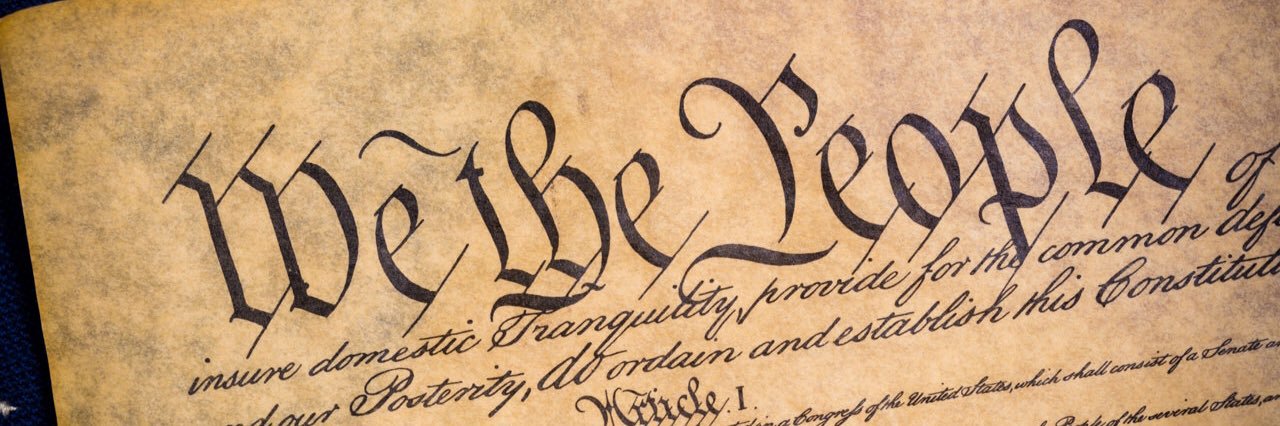 We the People of
insure domestic Tranquility, provide for the common def
our Posterity, do ordain and establish this Constitut
Article. I.
in a Congress of the United States, which shall consist of a Senate
People of the several States,